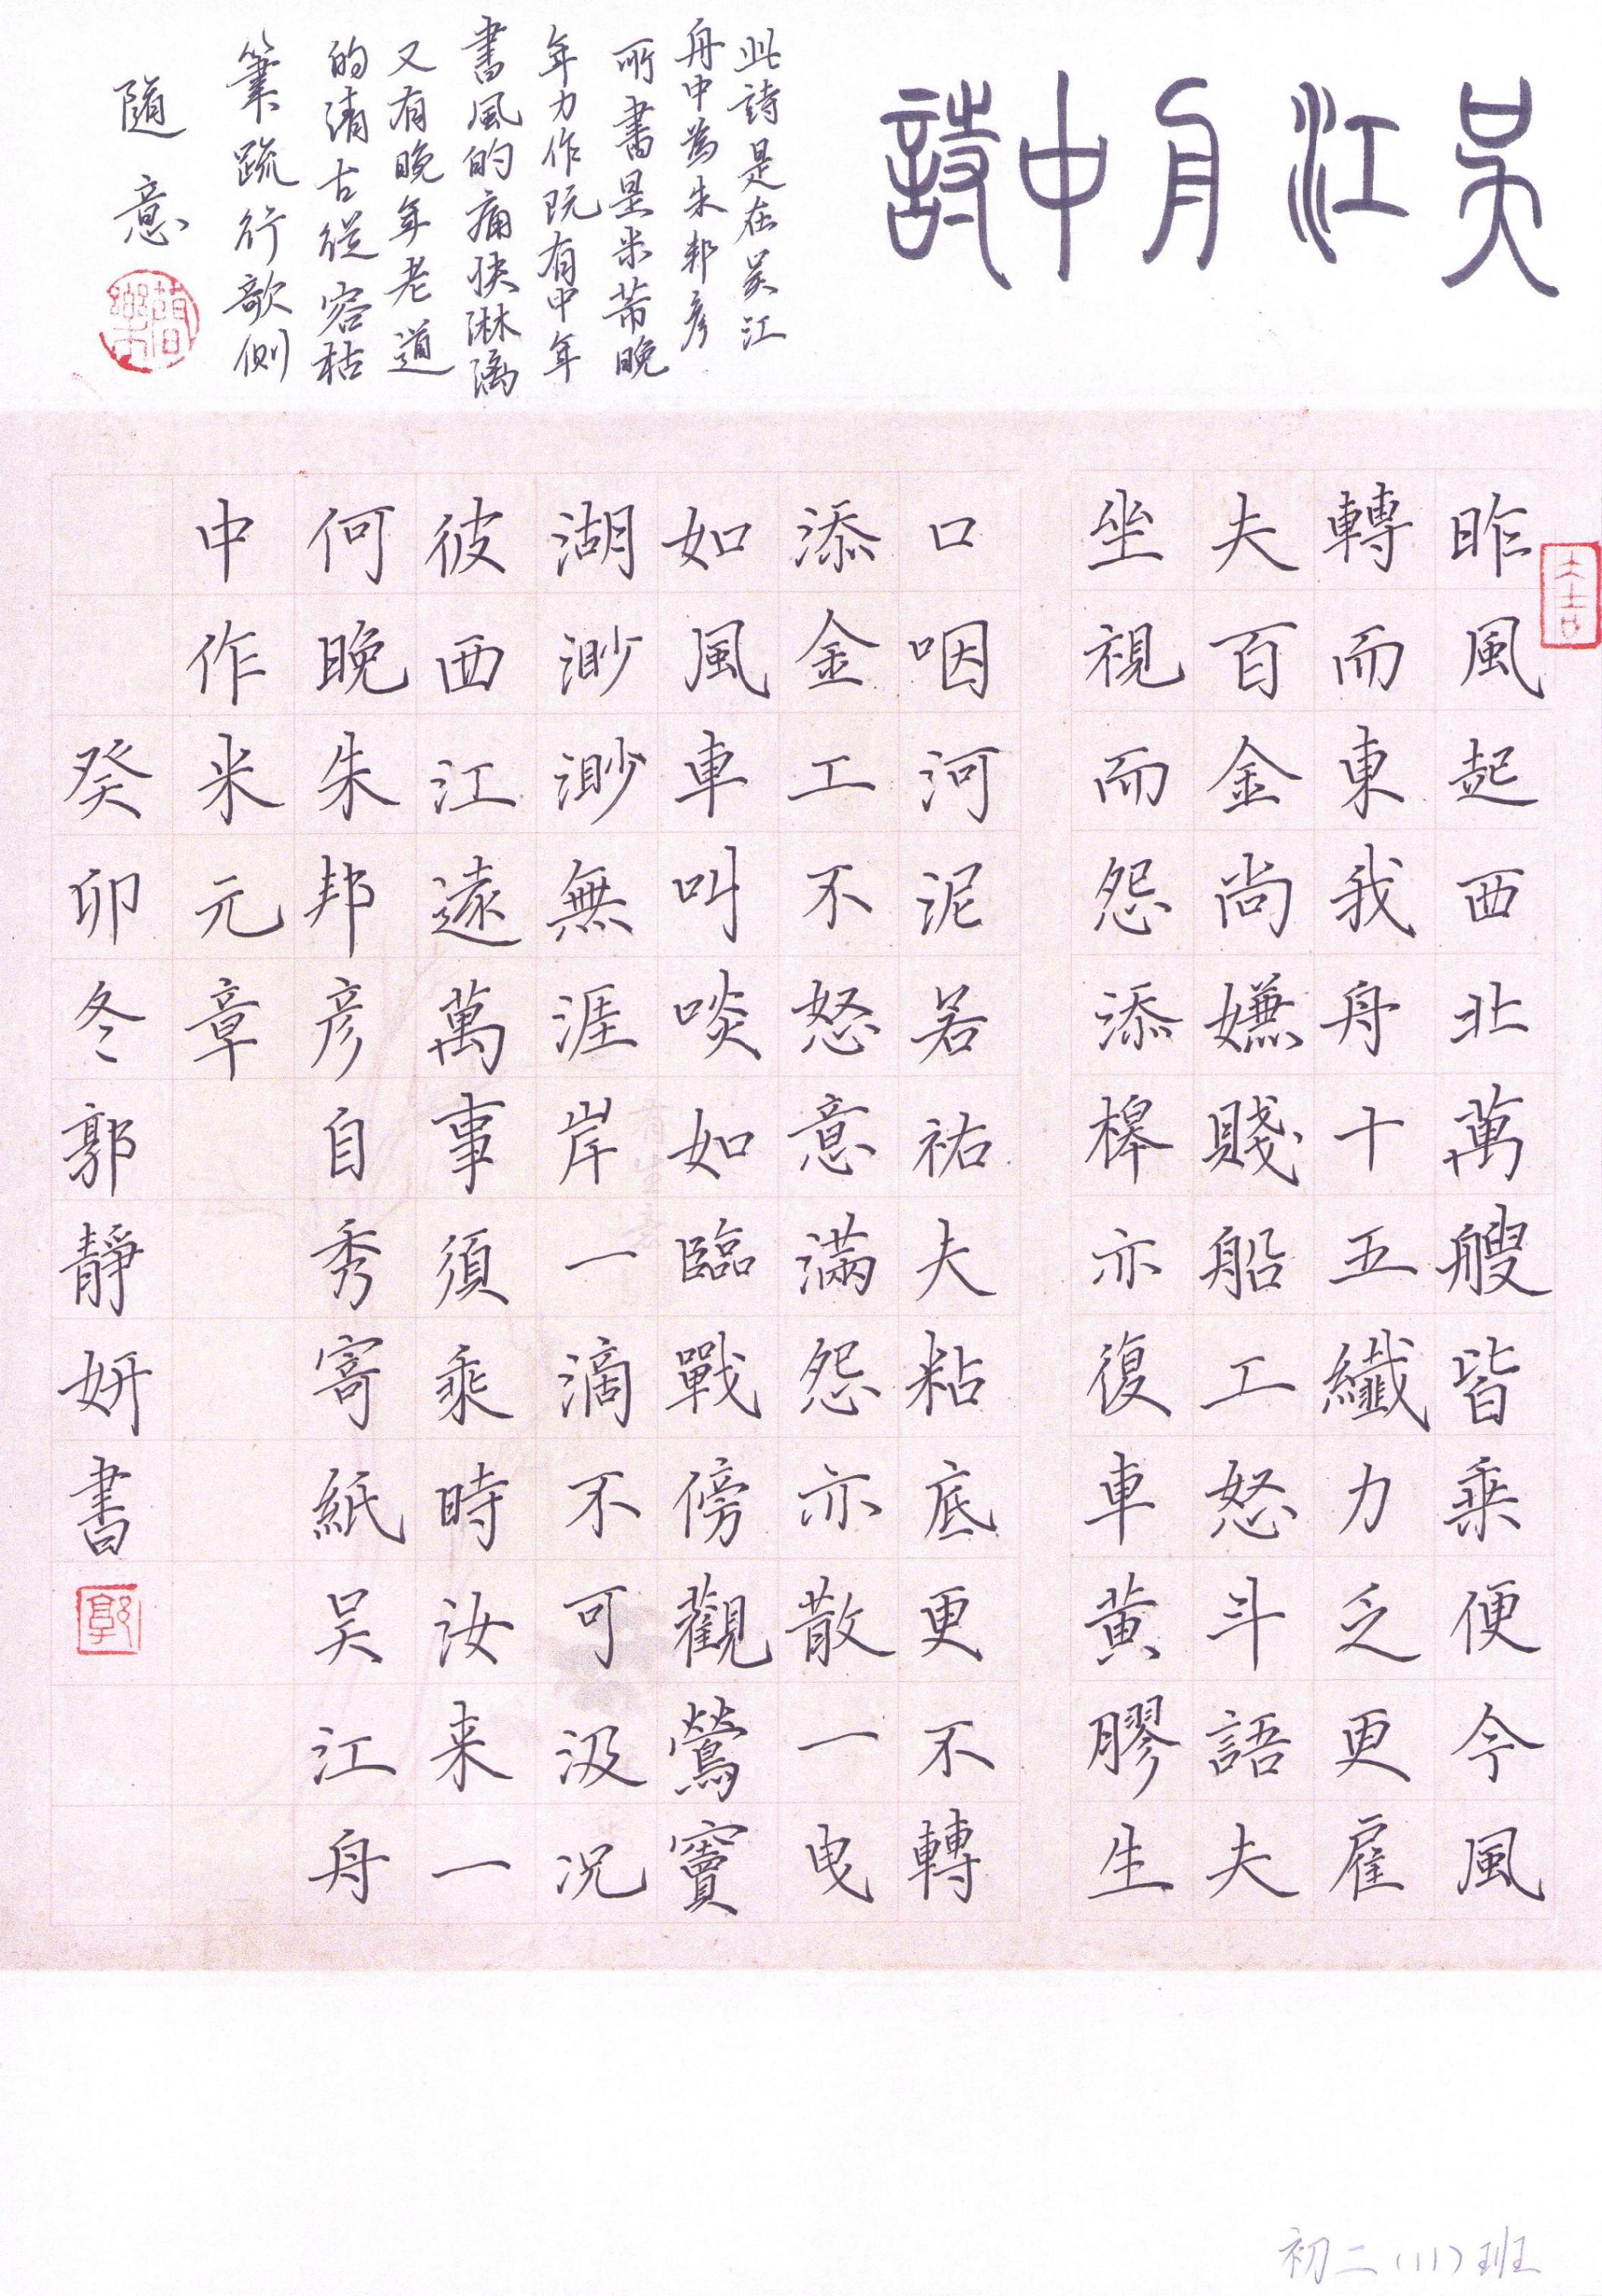 吳江舟中詩
此詩是在吴江
舟中為朱邦彥
所書是米芾晚
年力作既有中年
書風的痛快淋漓
又有晚年老道
的清古從容枯
筆疏行欹側
隨意
大吉
昨風起西北萬艘皆乗便今風
轉而東我舟十五纖力乏更雇
夫百金尚嫌賤船工怒斗語夫
坐視而怨添槔亦復車黄膠生
口咽河泥若祐夫粘底更不轉
添金工不怒意滿怨亦散一曳
如風車叫啖如臨戰傍觀鶯竇
湖渺渺無涯岸一滴不可汲况
彼西江遠萬事須乘時汝来一
何晚朱邦彥自秀寄紙吴江舟
中作米元章
癸卯冬郭靜妍書
郭
初二(11)班